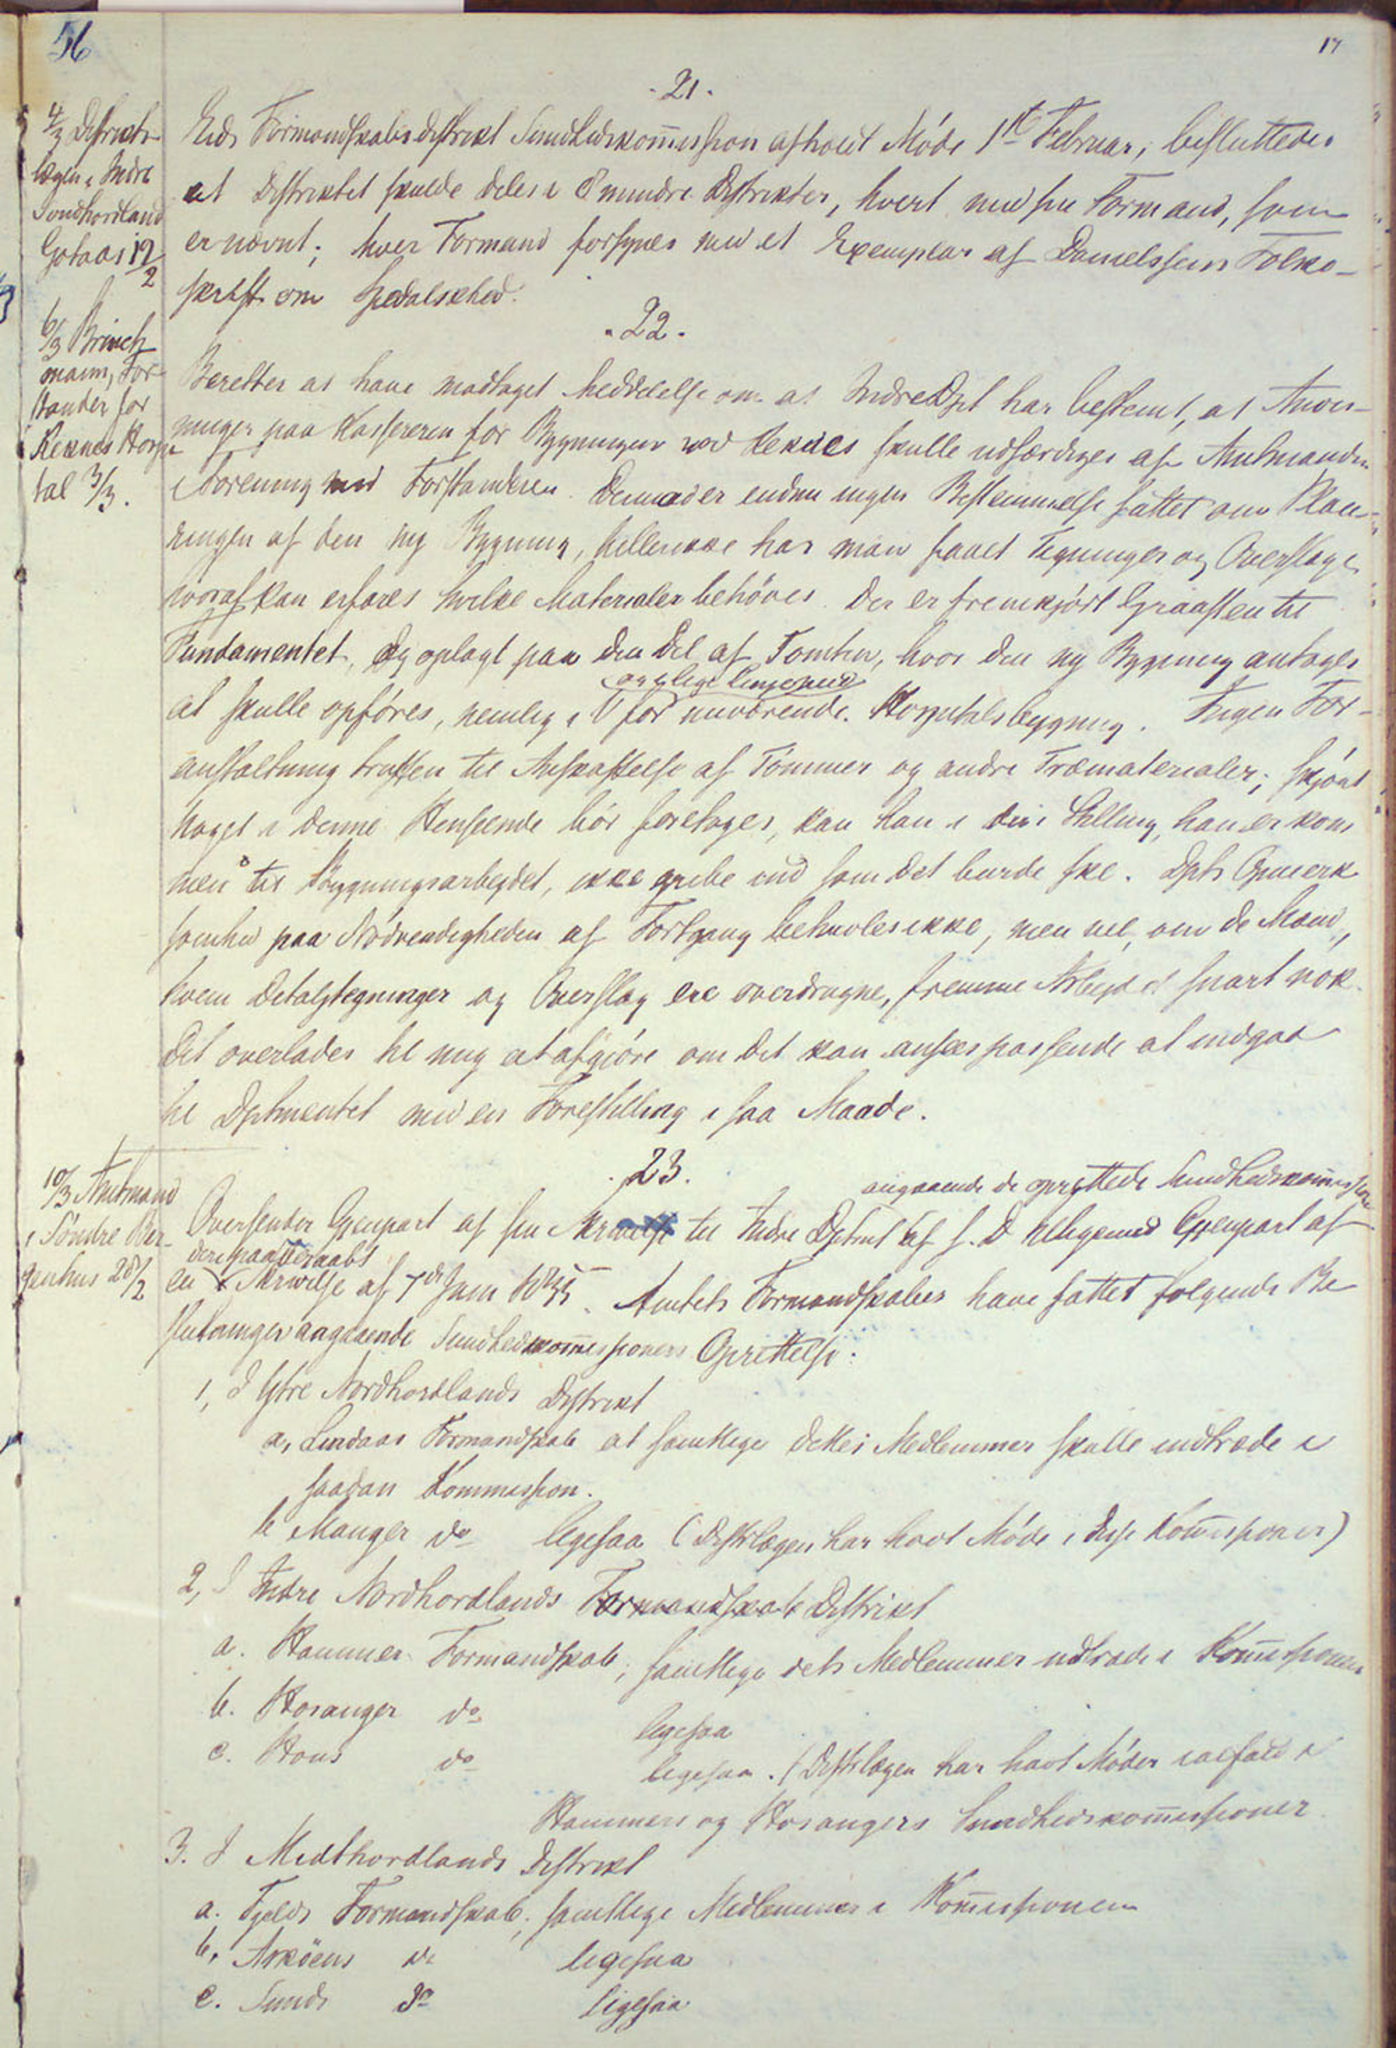 56
17
21.
4/3 Distrikts-
lægen i Indre
Søndhordland
Gotaas 12/2
Eids Formandskabsdistrikt Sundhedskommission afholdt Møde 1ste Februar; besluttedes
at Distriktet skulde deles i 8 mindre Distrikter, hvert med sin Formand, som
er nævnt; hver Formand forsynes med et Exemplar af Danielssens Folke-
skrift om Spedalskhed.
22.
6/3 Brinch
mann, For-
stander for
Reknes Hospi
tal 3/3.
Beretter at have modtaget Meddelelse om at Indredpt har bestemt, at Anvis-
ninger paa Kassereren for Bygningen ved Reknes skulle udfærdiges af Amtmanden
i Forening med Forstanderen. Derimod er endnu ingen Bestemmelse fattet om Place-
ringen af den ny Bygning, hellerikke har man faaet Tegninger og Overslage
hvoraf kan erfares hvilke Materialer behöves. Der er fremkjört Graasten til
Fundamentet, og oplagt paa den Del af Tomten, hvor den ny Bygning antages
at skulle opföres, nemlig i V for nuværende Hospitalsbygning. Ingen For-
anstaltning truffen til Anskaffelse af Tömmer og andre Træmaterialer; skjönt
Noget i denne Henseende bör foretages, kan han i den Stilling, han er kom
men til Bygningsarbejdet, ikke gribe ind som det burde ske. Dpts Opmerk
somhed paa Nödvendigheden af Fortgang betvivles ikke, men vel, om de Mænd,
hvem Detaljtegninger og Overslag ere overdragne, fremme Arbejdet snart nok.
Det overlades til mig at afgjöre om det kan ansees passende at indgaa
til Dptmentet med en Forestilling i saa Maade.
23.
10/3 Amtmand
i Söndre Ber-
genhus 28/2
angaaende de oprettede Sundhedskommissioner
Oversender Gjenpart af sin Skrivelse til Indre Dptmt af s. D tilligemed Gjenpart af
en deri paaberaabt Skrivelse af 7de Jan 1855. Amtets Formandskaber have fattet følgende Be
slutninger angaaende Sundhedskommissioners Oprettelse:
1, I Ytre Nordhordlands Distrikt
a, Lindaas Formandskab at samtlige dettes Medlemmer skulle indtræde i
saadan Kommission.
b Manger do ligesaa (Distrlægen har havt Møde i disse Kommissioner)
2, I Indre Nordhordlands Distrikt
a. Hammer Formandskab; samtlige dets Medlemmer indtræde i Kommissionen
b. Hosanger do ligesaa
c. Hous do ligesaa. (Distrlægen har havt Møder ialfald i
Hammers og Hosangers Sundhedskommissioner
3. I Midthordlands Distrikt
a. Fjelds Formandskab; samtlige Medlemmer i Kommissionen
b, Askøens do ligesaa
c. Sunds Do ligesaa